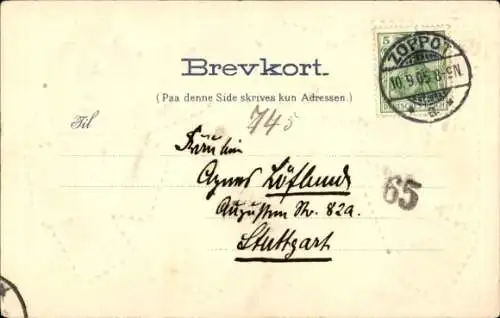 5
ZOPPOT
10.9.05.8-9N.
a
Brevkort.
(Paa denne Side skrives kun Adressen.)
745
Til
Fräulein
Agnes Löflund
Augusten Str. 82a.
Stuttgart
65